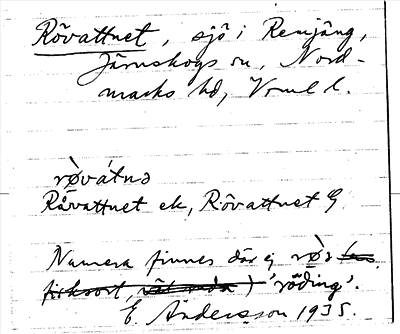 Rövattnet, sjö i Remjäng,
Järnskogs sn, Nord-
marks hd, Vrml l.
rø̀vátnə
Råvattnet ek, Rövattnet G
Numera finnes där ej
fisksort, ) 'röding'.
E. Andersson 1935.